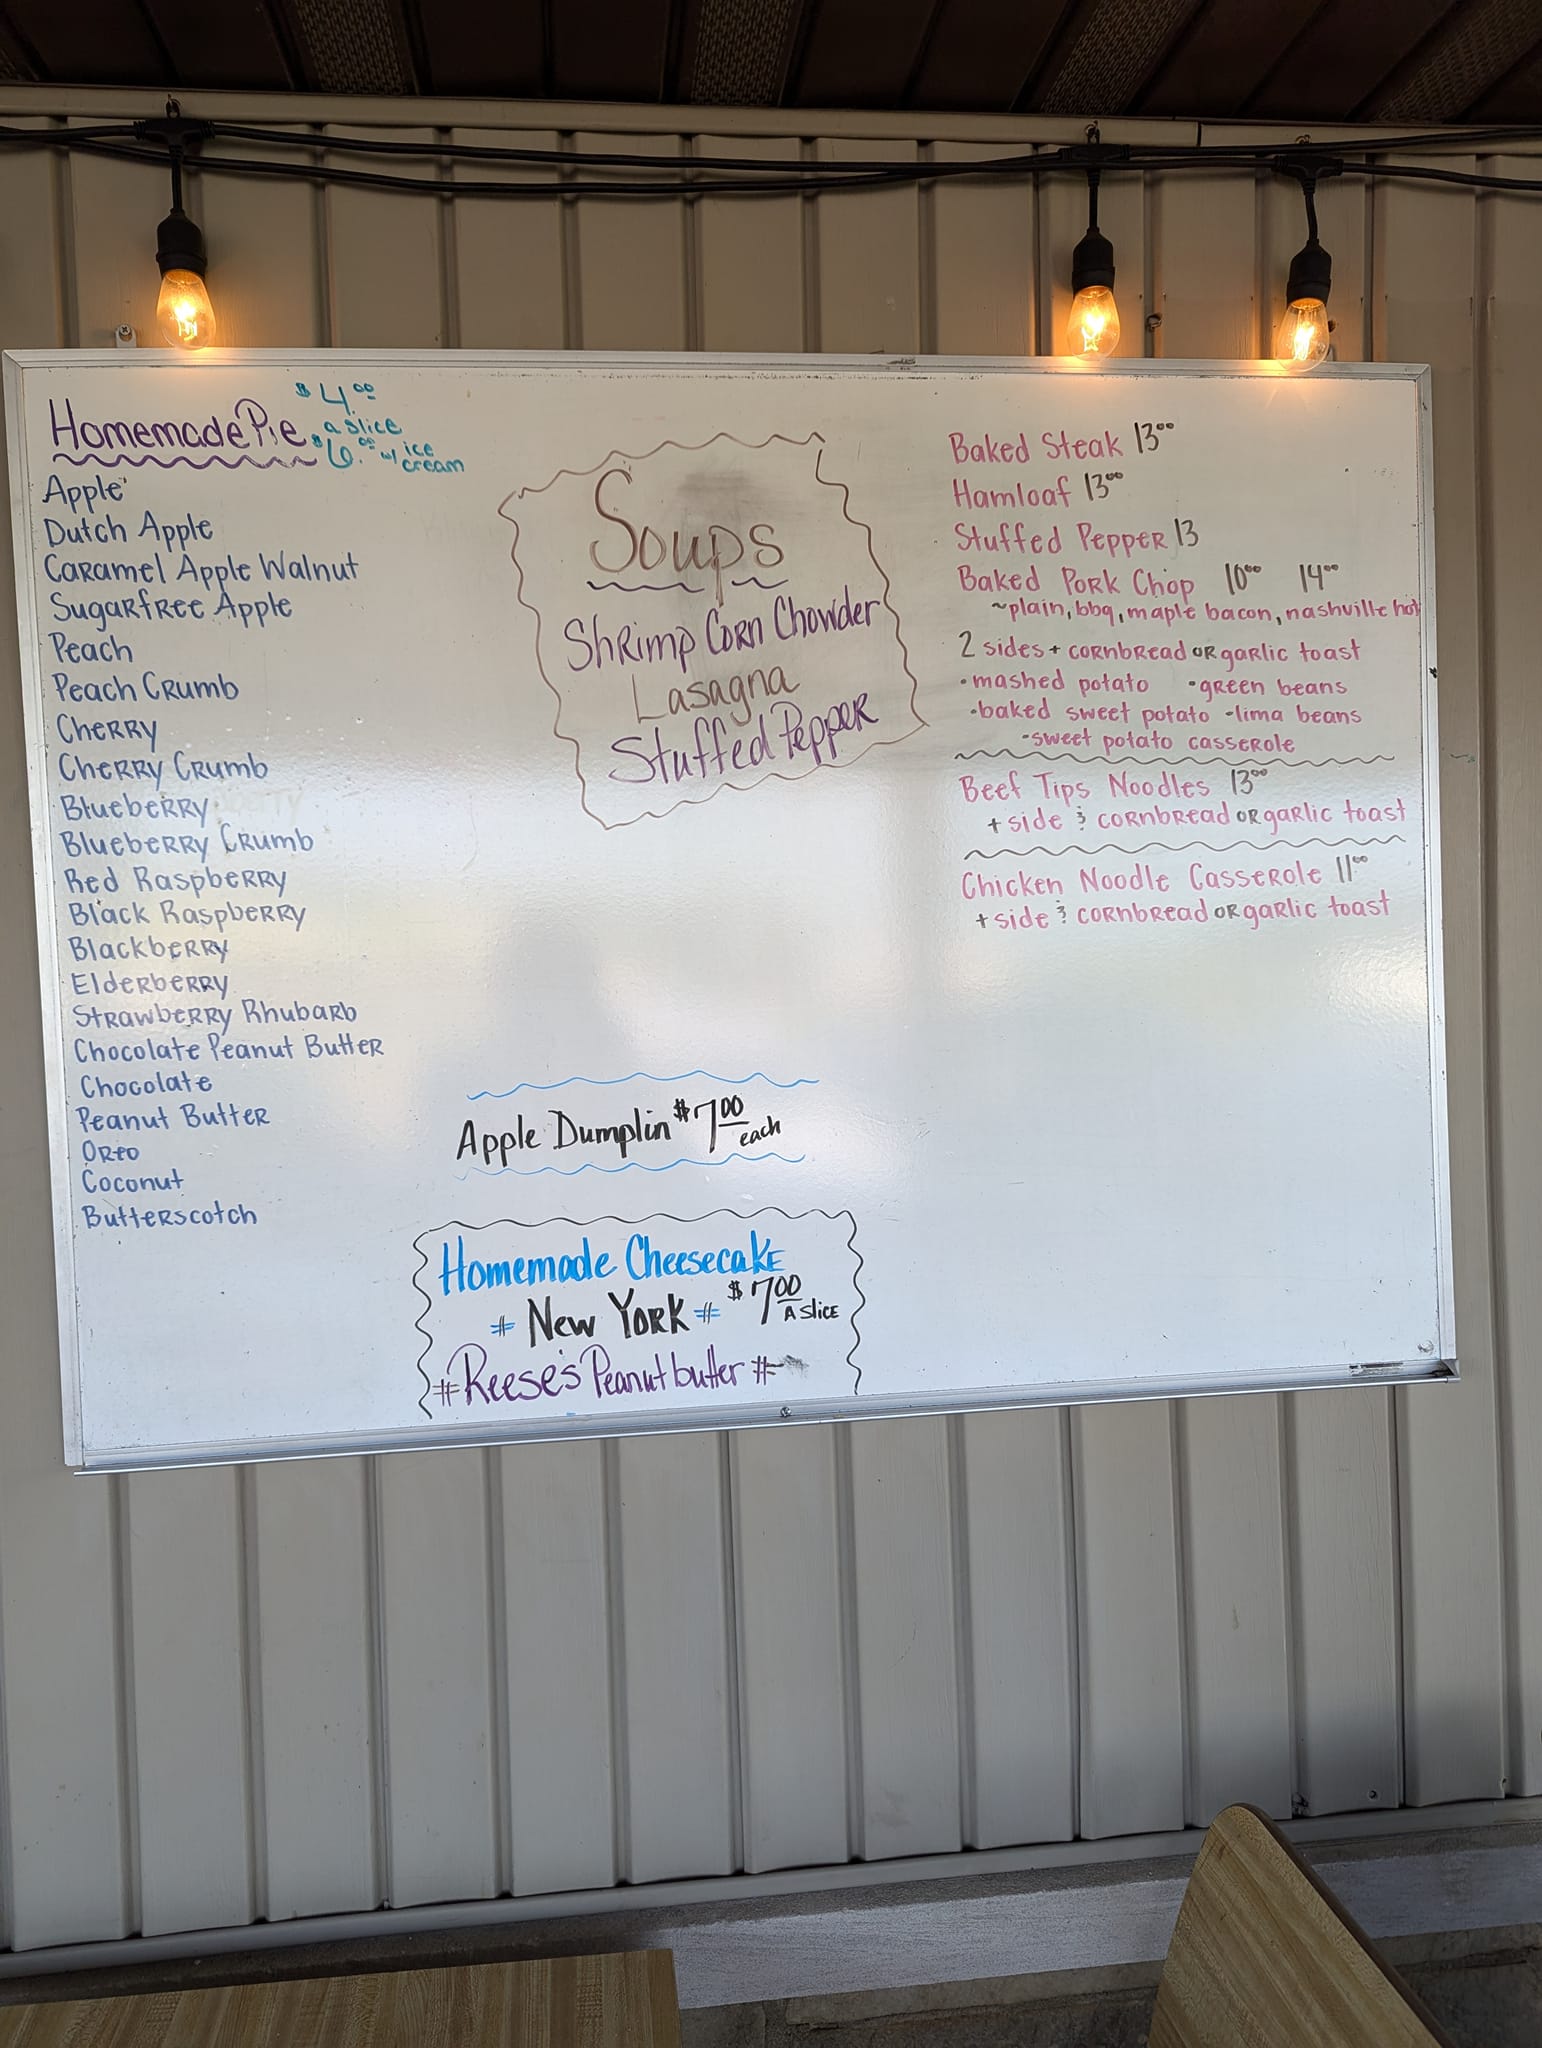 Homemade Pie $4.00 a slice
$6.00 w/ ice cream
Apple
Dutch Apple
Caramel Apple Walnut
Sugarfree Apple
Peach
Peach Crumb
Cherry
Cherry Crumb
Blueberry
Blueberry Crumb
Red Raspberry
Black Raspberry
Blackberry
Elderberry
Strawberry Rhubarb
Chocolate Peanut Butter
Chocolate
Peanut Butter
Oreo
Coconut
Butterscotch
Soups
Shrimp Corn Chowder
Lasagna
Stuffed Pepper
Apple Dumplin $7.00 each
Homemade Cheesecake
# New York # $7.00 a slice
# Reese's Peanut butter #
Baked Steak 13.00
Hamloaf 13.00
Stuffed Pepper 13
Baked Pork Chop 10.00 14.00
~plain, bbq, maple bacon, nashville hot
2 sides + cornbread or garlic toast
•mashed potato •green beans
•baked sweet potato •lima beans
•sweet potato casserole
Beef Tips Noodles 13.00
+ side & cornbread or garlic toast
Chicken Noodle Casserole 11.00
+ side & cornbread or garlic toast